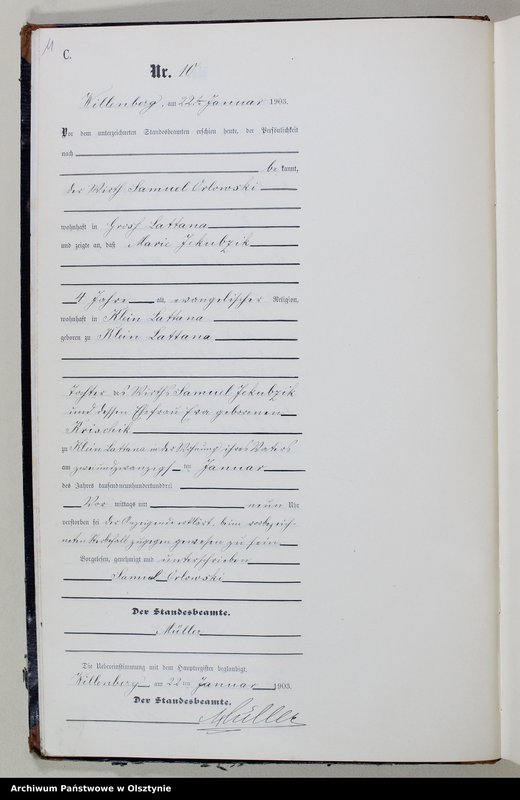 11
C.
Nr. 10
Willenberg, am 22ten Januar 1903.
Vor dem unterzeichneten Standesbeamten erschien heute, der Persönlichkeit
nach
be kannt,
der Wirth Samuel Orlowski
wohnhaft in Groß Lattana
und zeigte an, daß Marie Jekubzik
4 Jahre alt, evangelischer Religion,
wohnhaft in Klein Lattana
geboren zu Klein Lattana
Tochter des Wirths Samuel Jekubzik
und dessen Ehefrau Eva geborenen
Krischik
zu Klein Lattana in der Wohnung ihres Vaters
am zweiundzwanzigsten Januar
des Jahres tausendneunhundertunddrei
Vor mittags um neun Uhr
verstorben sei der Anzeigende erklärt, beim vorbezeich-
neten Sterbefall zugegen gewesen zu sein
Vorgelesen, genehmigt und unterschrieben
Samuel Orlowski
Der Standesbeamte.
Müller
Die Uebereinstimmung mit dem Hauptregister beglaubigt.
Willenberg, am 22ten Januar 1903.
Der Standesbeamte.
Müller
Archiwum Państwowe w Olsztynie